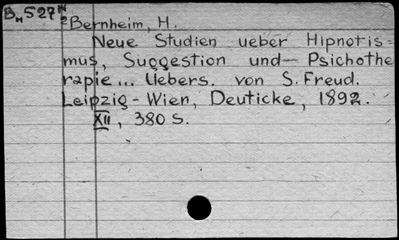 B„527 N2
Bernheim, H.
Neue Studien ueber Hipnotis=
mus, Suggestion und Psichothe
rapie... Uebers. von S. Freud.
Leipzig - Wien, Deuticke, 1892.
XII, 380 S.